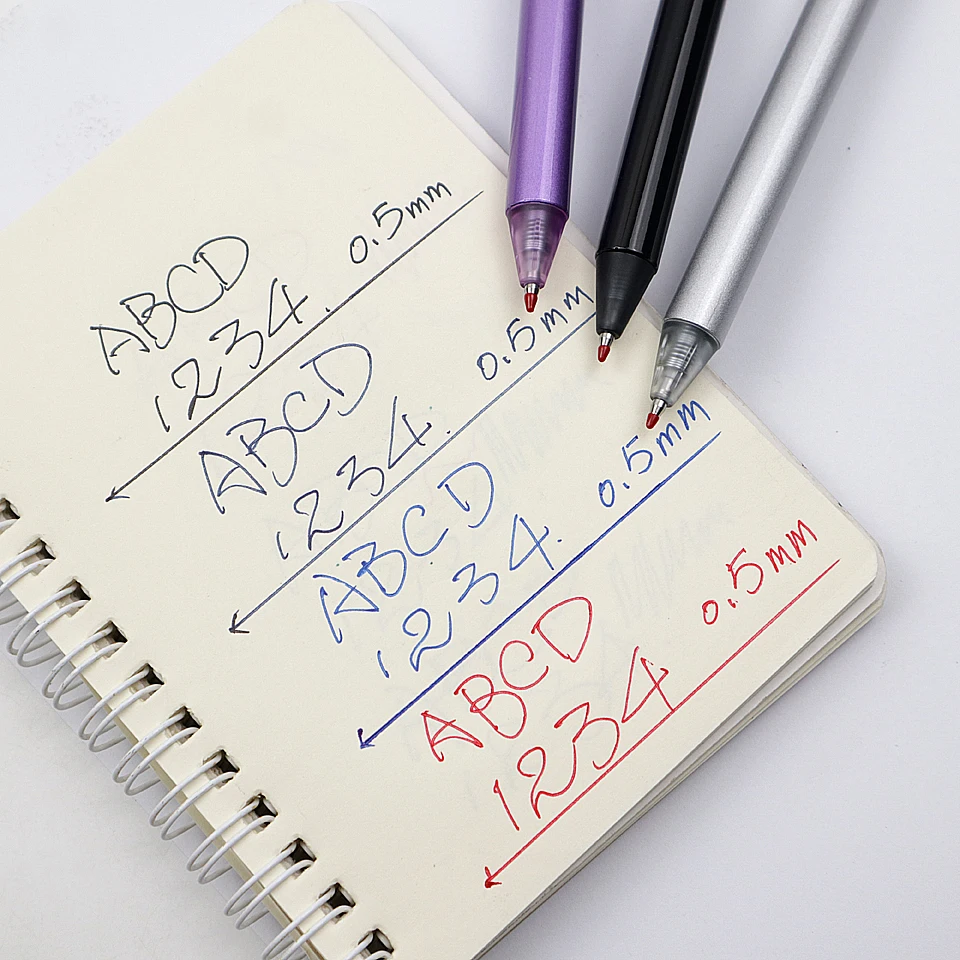 ABCD
1234. 0.5mm
ABCD
1234. 0.5mm
ABCD
1234. 0.5mm
ABCD
1234 0.5mm